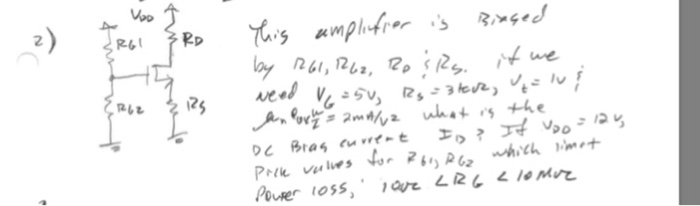 2)
VDD
RG1
RD
RG2
RS
This amplifier is Biased
by RG1, RG2, RD & RS. if we
need VG = 5V, RS = 3kΩ, Vt = 1V &
= 2mA/V2 what is the
DC Bias current ID? If VDD = 12V,
Pick values for RG1, RG2 which limit
Power loss, < RG < 10MΩ